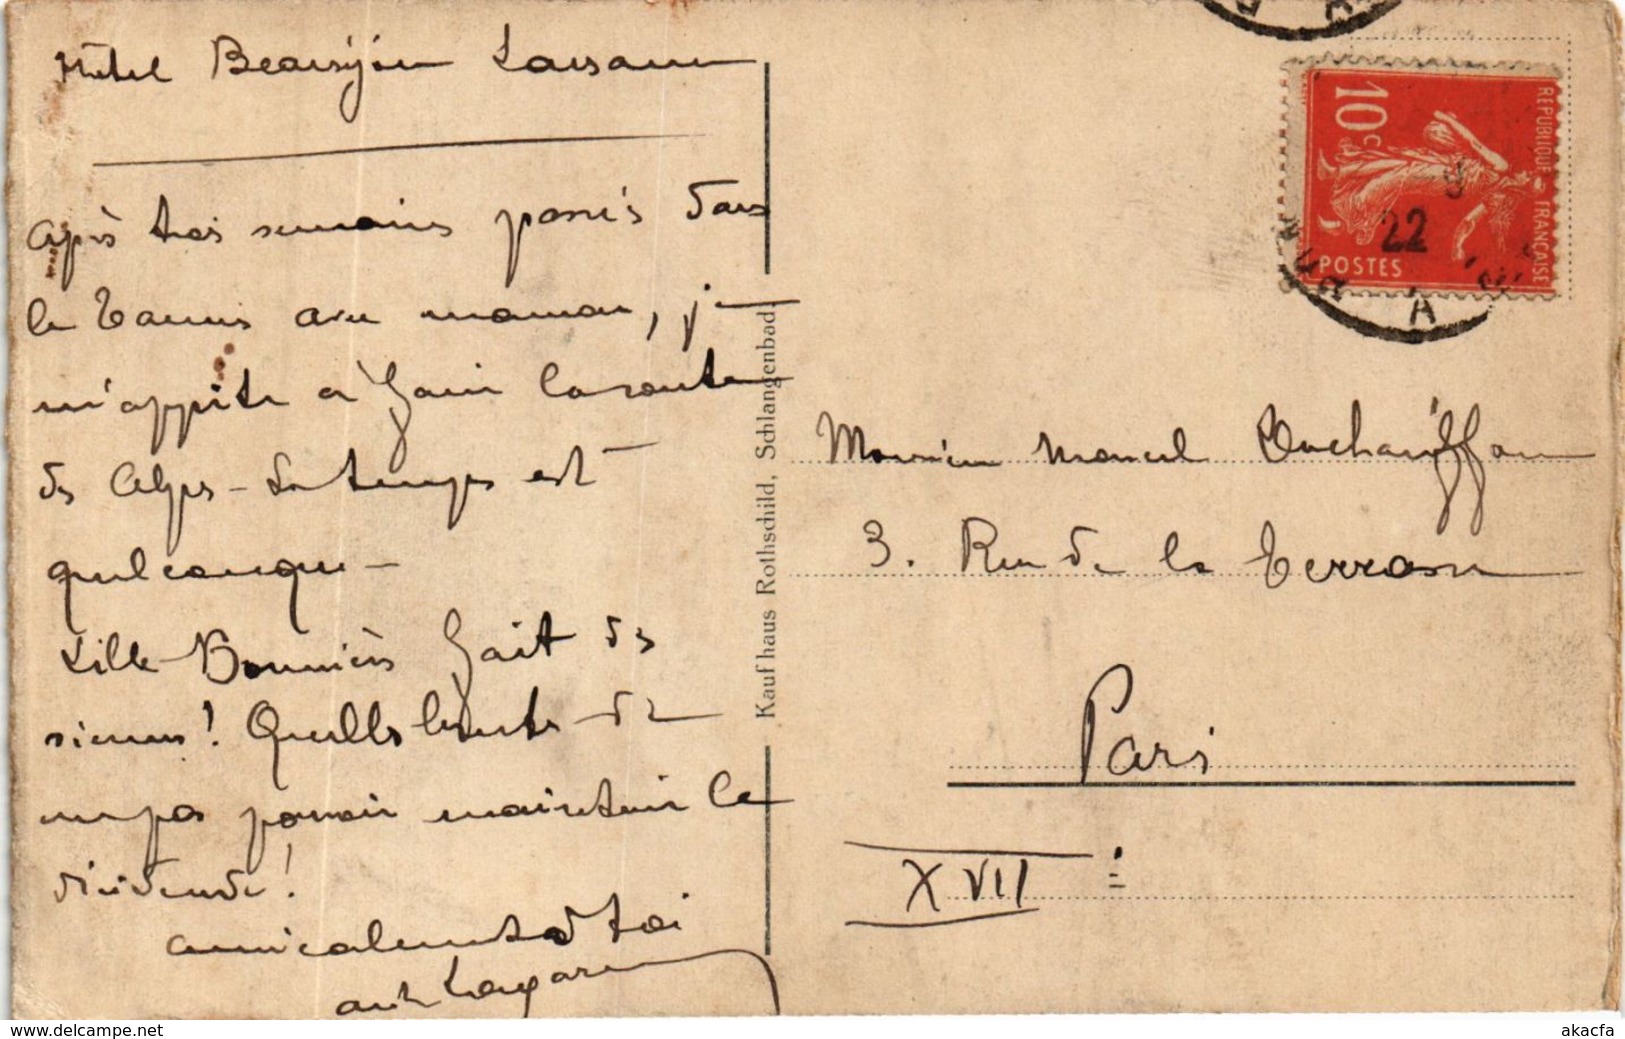 Hôtel Beauséjour Lausanne
après trois semaines passés dans
le Taunus avec maman, je
m'apprète a faire la route
des Alpes - Le temps est
quelconque -
Lille-Bonnières fait des
siennes! Quelle honte de
ne pas pouvoir maintenir le
dividende!
amicalement à toi
Kaufhaus Rothschild, Schlangenbad
10c
REPUBLIQUE FRANÇAISE
POSTES
22
Monsieur Marcel Duchauffour
3. Rue de la Terrasse
Paris
XVII
akacfa
www.delcampe.net